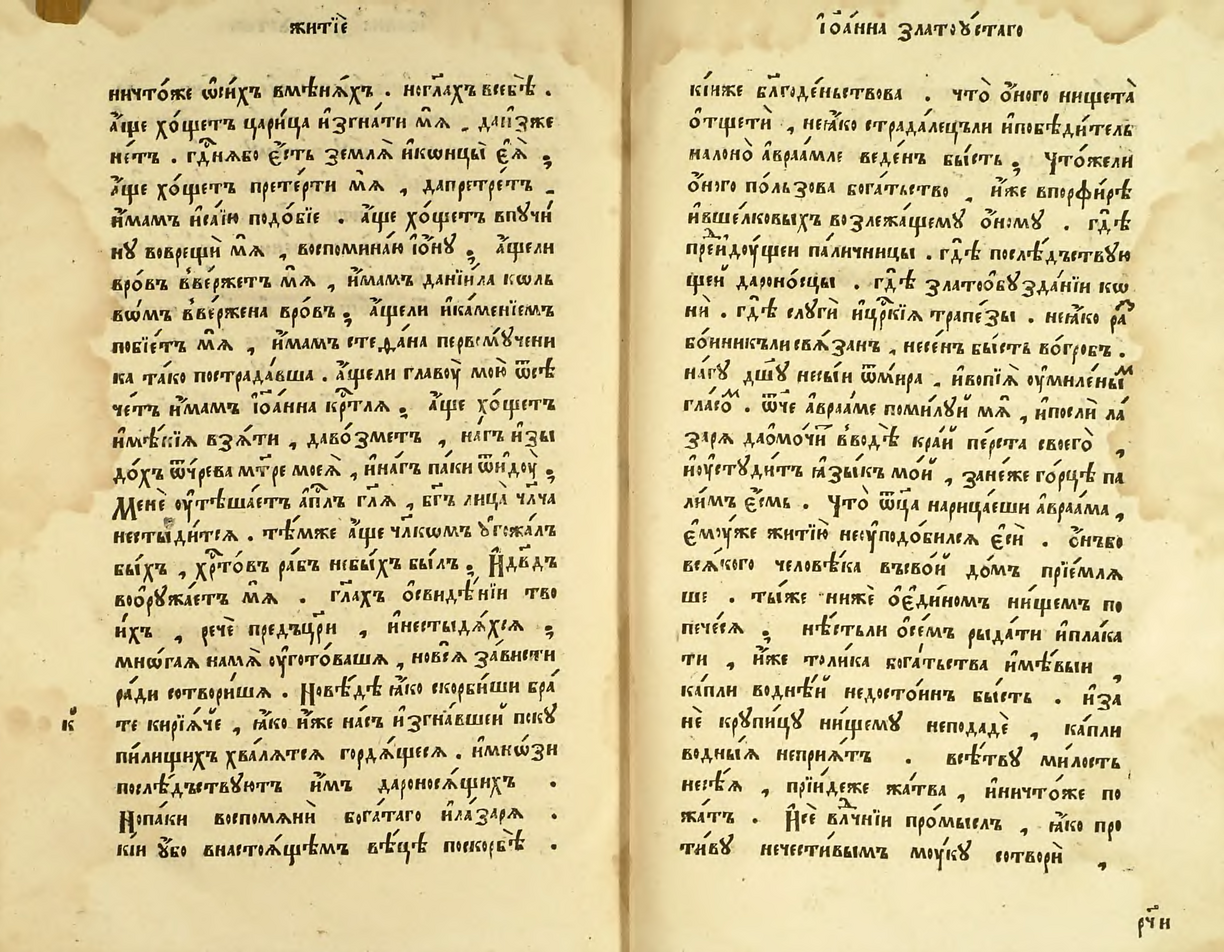 житїѐ
ничто́же ѿси́хъ вмѣнѧ́хъ . ногл҃ахъ всебѣ̀ .
а҆́ще хо́щетъ цари́ца и҆згна́ти мѧ̀ . даи҆зже
не́тъ . гд҇нѧбо є҆́сть землѧ̀ и҆кѡнцы̀ є҆ѧ̀ ;
а҆́ще хо́щетъ прете́рти мѧ̀ , дапретре́тъ .
и҆́мамъ и҆са́їю подо́бїе . а҆́ще хо́щетъ впꙋчи
нꙋ вовре́щи мѧ̀ , воспомина́ю і҆ѡ́нꙋ ; а҆́щели
вро́въ вве́ржетъ мѧ̀ , и҆́мамъ данїи́ла колъ
вѡмъ вве́ржена вро́въ ; а҆́щели и҆ка́менїемъ
побїе́тъ мѧ̀ , и҆́мамъ стефа́на первомꙋ́чени
ка та́ко пострада́вша . а҆́щели главоу̀ мою̀ ѿсѣ
че́тъ и҆́мамъ і҆ѡа́нна кр҇тлѧ ; а҆́ще хо́щетъ
и҆мѣ́нїѧ взѧ́ти , даво́зметъ , на́гъ и҆зы
до́хъ ѿчре́ва мт҃ре моеѧ̀ , и҆на́гъ па́ки ѿи҆доу̀ ;
Менѐ оу҆тѣша́етъ а҆пⷭ҇лъ гл҃ѧ , бг҃ъ лица̀ чл҃ча
нестыди́тсѧ . тѣ́мже а҆́ще чл҃кѡмъ ᲂу҆гожа́лъ
бы́хъ , хрⷭ҇то́въ ра́бъ небы́хъ бы́лъ ; И҆дв҃дъ
воѻрꙋжа́етъ мѧ̀ . гл҃ахъ ѻ҆свидѣ́нїи тво
и́хъ , речѐ предъцр҃и , и҆нестыдѧ́хсѧ ;
мнѡ́гаѧ намѧ̀ оу҆гото́вашѧ , новсѧ̀ за́висти
ра́ди сотвори́шѧ . Новѣ́дѣ ꙗ҆́ко скорби́ши бра́
те кирїѧ́че , ꙗ҆́ко и҆́же на́съ и҆згна́вшеи пскꙋ
пи́лищихъ хва́лѧтсѧ гордѧ́щесѧ . и҆мнѡ́зи
послѣ́дъствꙋютъ и҆̀мъ дароносѧ́щихъ .
Нопа́ки воспомѧнѝ бога́таго и҆ла́зарѧ .
кі́и ᲂу҆́бо внастоѧ́щѣмъ вѣ́цѣ поскорбѣ̀ .
к҃
І҆ѡа́нна златоꙋ́стаго
кі́иже бл҃годе́ньствова . что̀ ѻ҆́ного нищета̀
ѻ҆тщетѝ , неꙗ҆́ко страда́лецъли и҆побѣди́тель
налоно̀ а҆враа́мле веде́нъ бы́сть ; Что́жели
ѻ҆́ного по́льзова бога́тьство , и҆́же впорфи́рѣ
и҆вшелко́выхъ возлежа́щемꙋ ѻ҆́номꙋ . гдѣ̀
преидоу́щеи па́личницы . гдѣ̀ послѣ́дъствꙋю
щеи дароно́сцы . гдѣ̀ златоѻ҆бꙋзда́нїи ко
нѝ . гдѣ̀ слꙋгѝ и҆цр҇кїѧ трапе́зы . неꙗ҆́ко ра
бо́йникъли свѧ́занъ , несе́нъ бы́сть во́гробъ .
на́гꙋ дш҃ꙋ несы́и ѿми́ра . и҆вопїѧ̀ оу҆миле́ныⷨ
гла́соⷨ . ѿ́че а҆враа́ме поми́лꙋи мѧ̀ , и҆послѝ ла́
зарѧ даѻ҆мо́читъ вводѣ̀ кра́й пе́рста своего̀ ,
и҆оу҆стꙋди́тъ ꙗ҆зы́къ мо́й , зане́же го́рцѣ па
ли́мъ є҆́смь . Что̀ ѿца̀ нарица́еши а҆враа́ма ,
є҆мꙋ́же житїю̀ неᲂу҆подо́билсѧ є҆сѝ . ѻ҆́нъбо
всѧ́кого человѣ́ка въсво́й до́мъ прїе́млѧ
ше . ты́же нижѐ ѻ҆є҆ди́номъ ни́щемъ по
пече́сѧ ; нѣ́стьли ѻ҆се́мъ рыда́ти и҆пла́ка
ти , и҆́же толи́ка бога́тьства и҆мѣ́выи ,
ка́пли воднѣ́й недосто́инъ бы́сть . и҆за
нѐ крꙋпи́цꙋ ни́щемꙋ неподадѐ , ка́пли
водны́ѧ неприѧ́тъ . всѣ́твꙋ ми́лость
несѣ́ѧ , прїи́деже жа́тва , и҆ничто́же по
жа́тъ . И҆сѐ влⷣчнїи про́мыслъ , ꙗ҆́ко про
ти́вꙋ нечести́вымъ моу́кꙋ сотворѝ ,
рч҃и